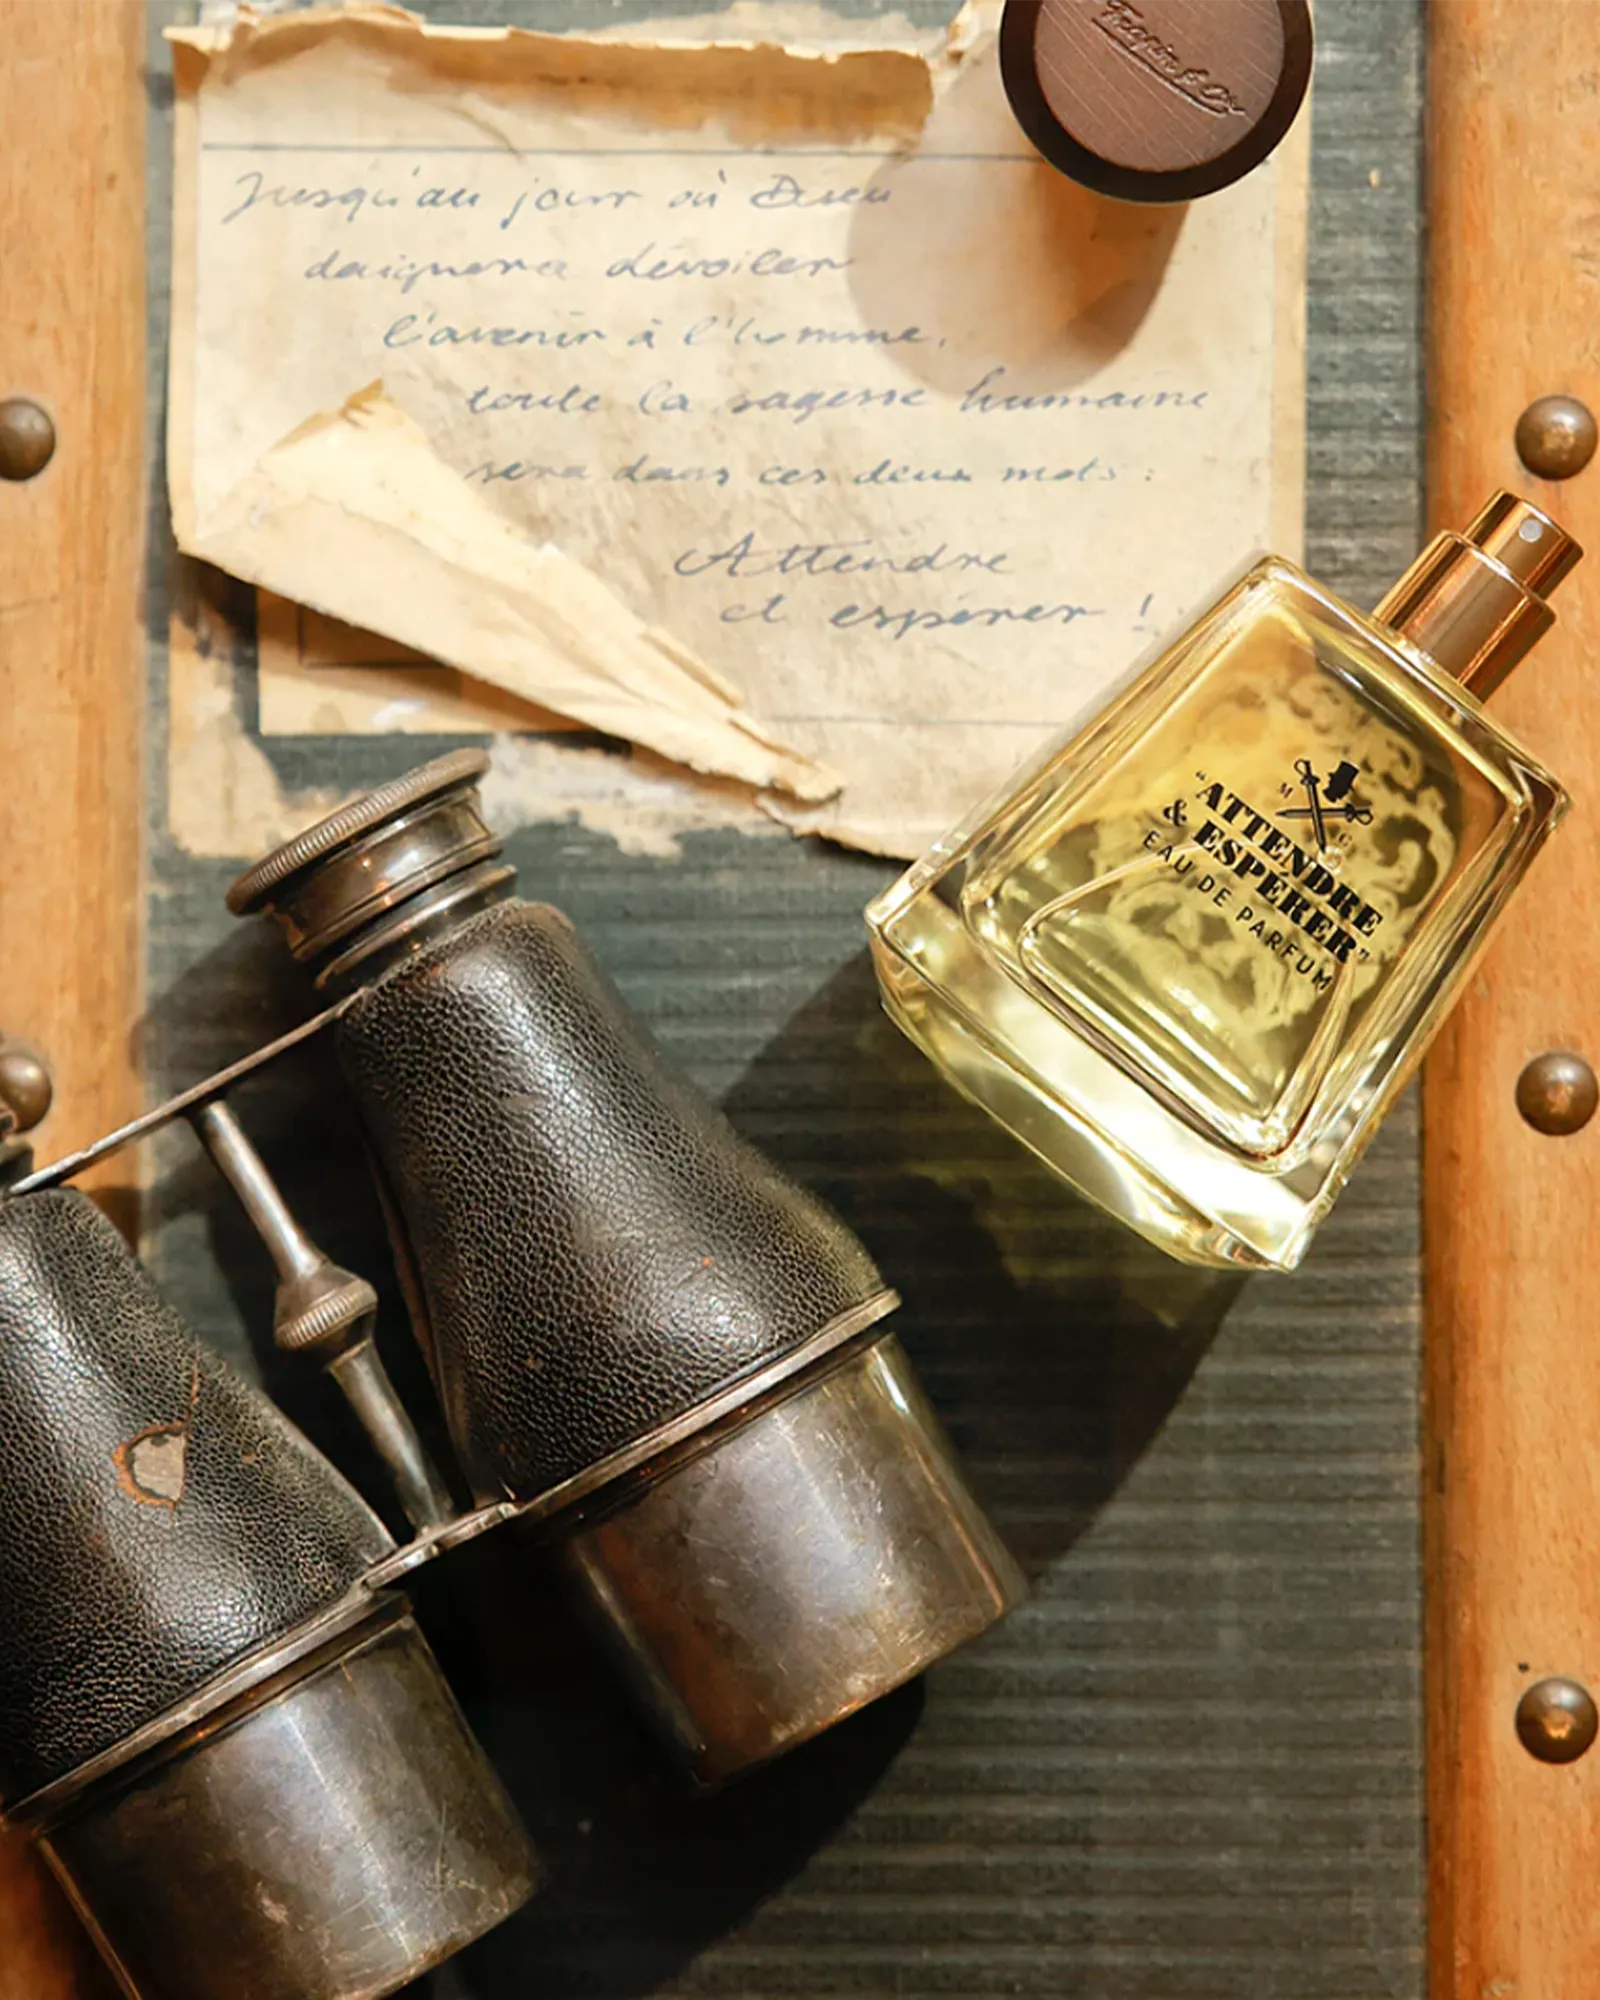 Frapin & Co
Jusqu'au jour où Dieu
daignera dévoiler
l'avenir à l'homme,
toute la sagesse humaine
sera dans ces deux mots :
Attendre
et espérer !
M C
"ATTENDRE
& ESPÉRER"
EAU DE PARFUM